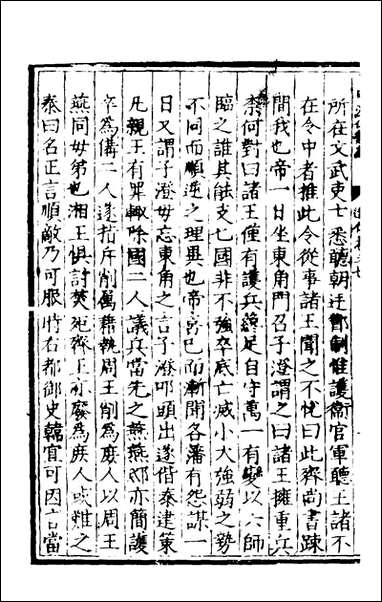 所在文武吏士悉聽朝廷節制惟護衛官軍聽王諸不
在令中者推此令從事諸王聞之不悅曰此齊尚書疎
間我也帝一日坐東角門召子澄謂之曰諸王擁重兵
柰何對曰諸王僅有護兵纔足自守萬一有變以六師
臨之誰其能支七國非不強卒底亡滅小大強弱之勢
不同而順逆之理異也帝第已而漸聞各藩有怨謀一
日又謂子澄毋忘東角之言子澄叩頭出遂偕泰建策
凡親王有罪輒除國二人議兵當先之燕燕邸亦簡護
卒為備二人遂指斥削萬藉執周王削為庶人以周王
燕同母弟也湘王懼討焚死齊王亦廢為庶人或難之
泰曰名正言順敵乃可服時右都御史韓宜可因言當